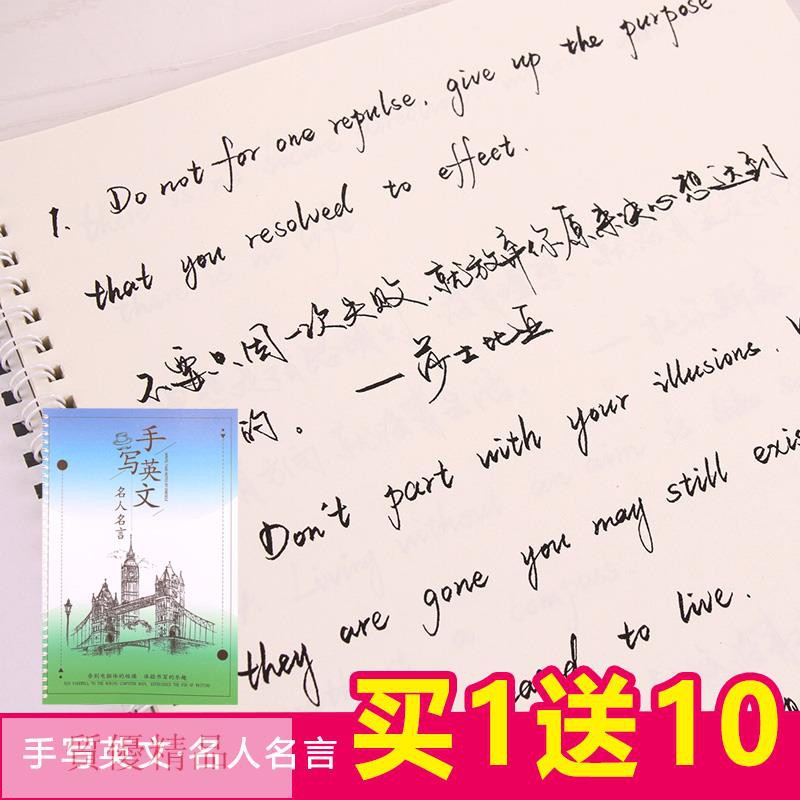 1. Do not for one repulse, give up the purpose
that you resolved to effect.
不要只因一次失败,就放弃你原来决心想达到
的。 —莎士比亚
Don't part with your illusions. W
they are gone you may still exis
to live.
手写英文
名人名言
告别电脑体的枯燥 体验书写的乐趣
SAY FAREWELL TO THE BORING COMPUTER BODY, EXPERIENCE THE FUN OF WRITING
手写英文 名人名言
買優精品
买1送10